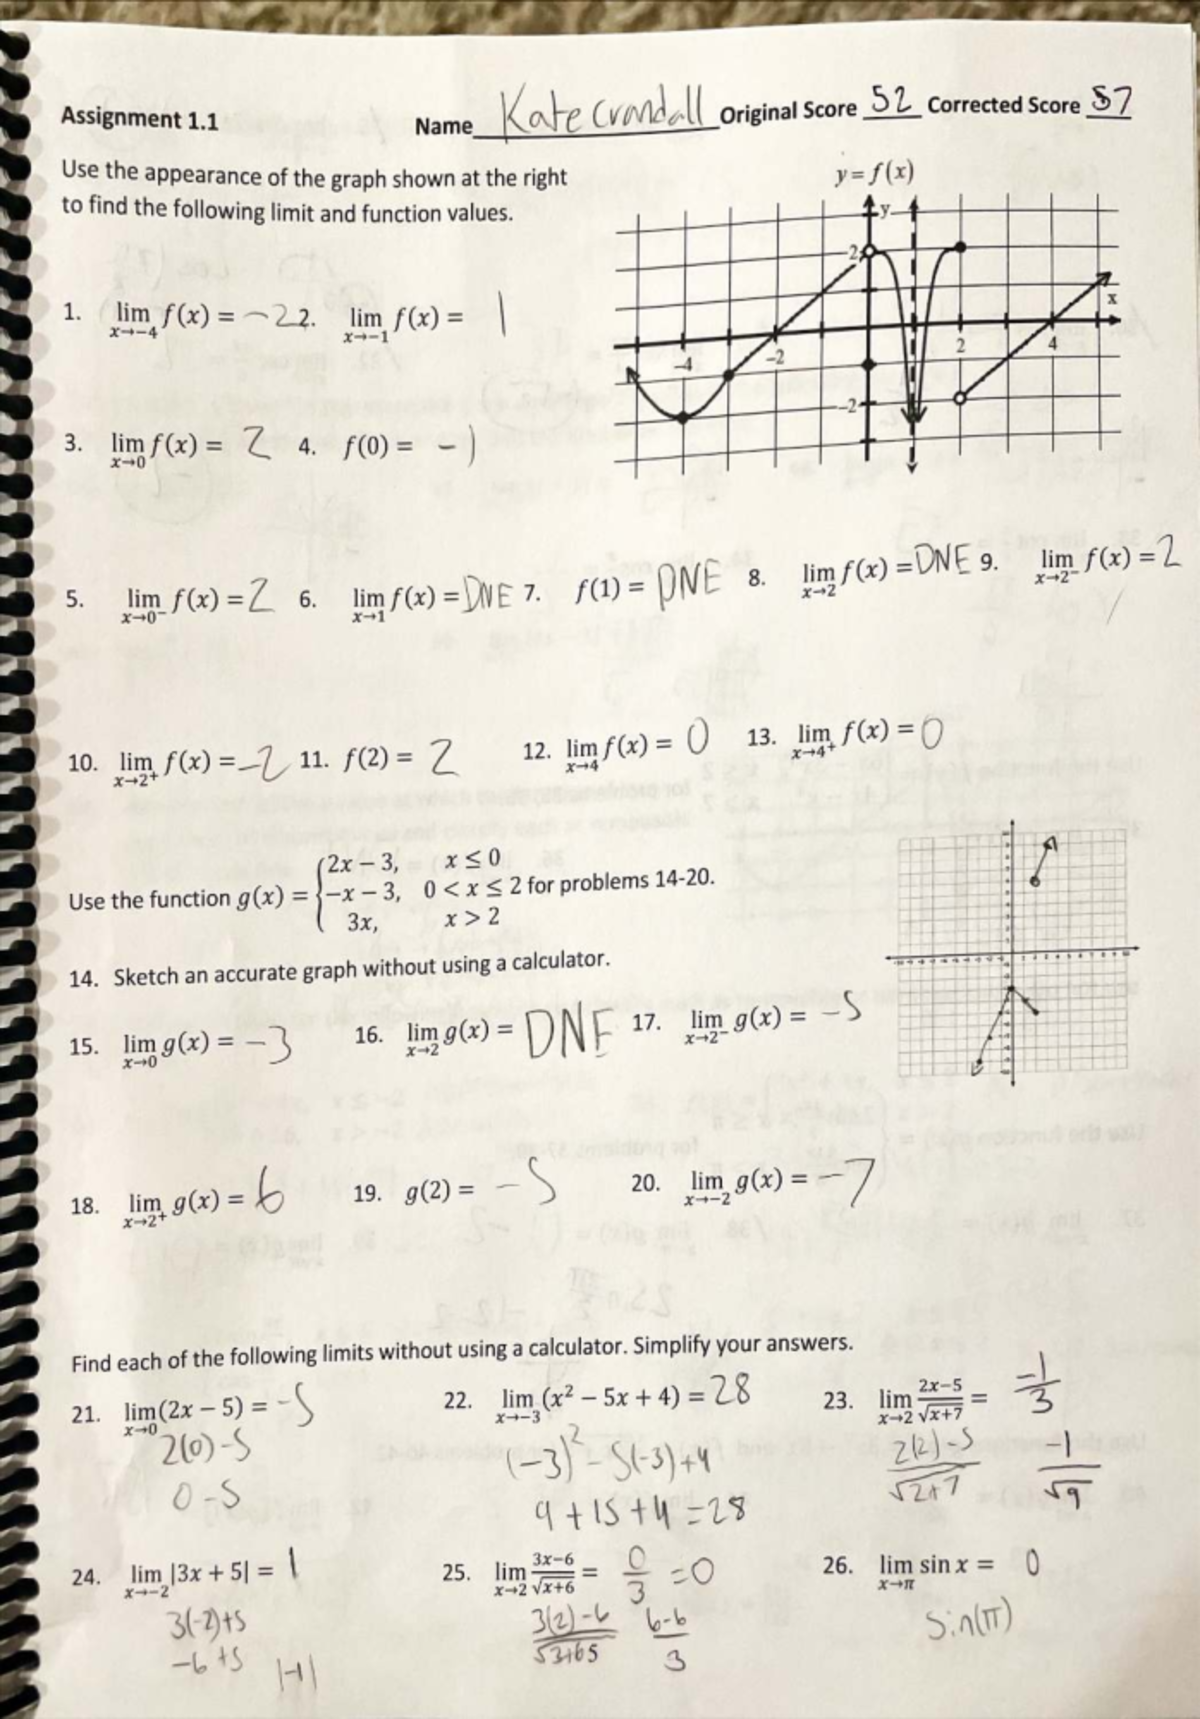 Assignment 1.1
Name Kate Crandall Original Score 52 Corrected Score 57
Use the appearance of the graph shown at the right
to find the following limit and function values.
y = f(x)
y
2
x
-4
-2
2
4
-2
1. lim x→-4 f(x) = -2 2. lim x→-1 f(x) = 1
3. lim x→0 f(x) = 2 4. f(0) = -1
5. lim x→0⁻ f(x) = 2 6. lim x→1 f(x) = DNE 7. f(1) = DNE 8. lim x→2 f(x) = DNE 9. lim x→2⁻ f(x) = 2
10. lim x→2⁺ f(x) = -2 11. f(2) = 2 12. lim x→4 f(x) = 0 13. lim x→4⁺ f(x) = 0
Use the function g(x) = { 2x − 3, x ≤ 0
−x − 3, 0 < x ≤ 2 for problems 14-20.
3x, x > 2
14. Sketch an accurate graph without using a calculator.
15. lim x→0 g(x) = -3 16. lim x→2 g(x) = DNE 17. lim x→2⁻ g(x) = -5
18. lim x→2⁺ g(x) = 6 19. g(2) = -5 20. lim x→-2 g(x) = -7
Find each of the following limits without using a calculator. Simplify your answers.
21. lim x→0 (2x − 5) = -5 22. lim x→-3 (x² − 5x + 4) = 28 23. lim x→2 2x−5/√x+7 = -1/3
2(0)-5 (-3)² - 5(-3)+4 2(2)-5/√2+7 -1/√9
0-5 9+15+4=28
24. lim x→-2 |3x + 5| = 1 25. lim x→2 3x−6/√x+6 = 0/3 =0 26. lim x→π sin x = 0
3(-2)+5 3(2)-6 6-6/3 sin(π)
-6+5 |-1|